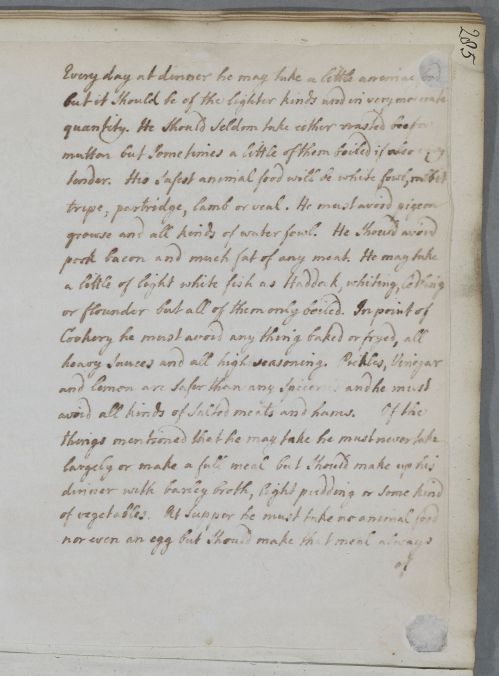 285
Every day at dinner he may take a little animal food
but it should be of the lighter kinds and in very moderate
quantity. He should seldom take either roasted beef or
mutton but sometimes a little of them boiled if also very
tender. His safest animal food will be white fowl, rabbit
tripe, partridge, lamb or veal. He must avoid pigeon
grouse and all kinds of water fowl. He should avoid
pork bacon and much fat of any meat. He may take
a little of light white fish as Haddock, whiting, Codling
or flounder but all of them only boiled. In point of
Cookery he must avoid any thing baked or fryed, all
heavy sauces and all high seasoning. Pickles, Vinegar
and lemon are safer than any and he must
avoid all kinds of salted meats and hams. Of the
things mentioned that he may take he must never take
largely or make a full meal but should make up his
dinner with barley broth, light pudding or some kind
of vegetables. At supper he must take no animal food
nor even an egg but should make that meal always
of